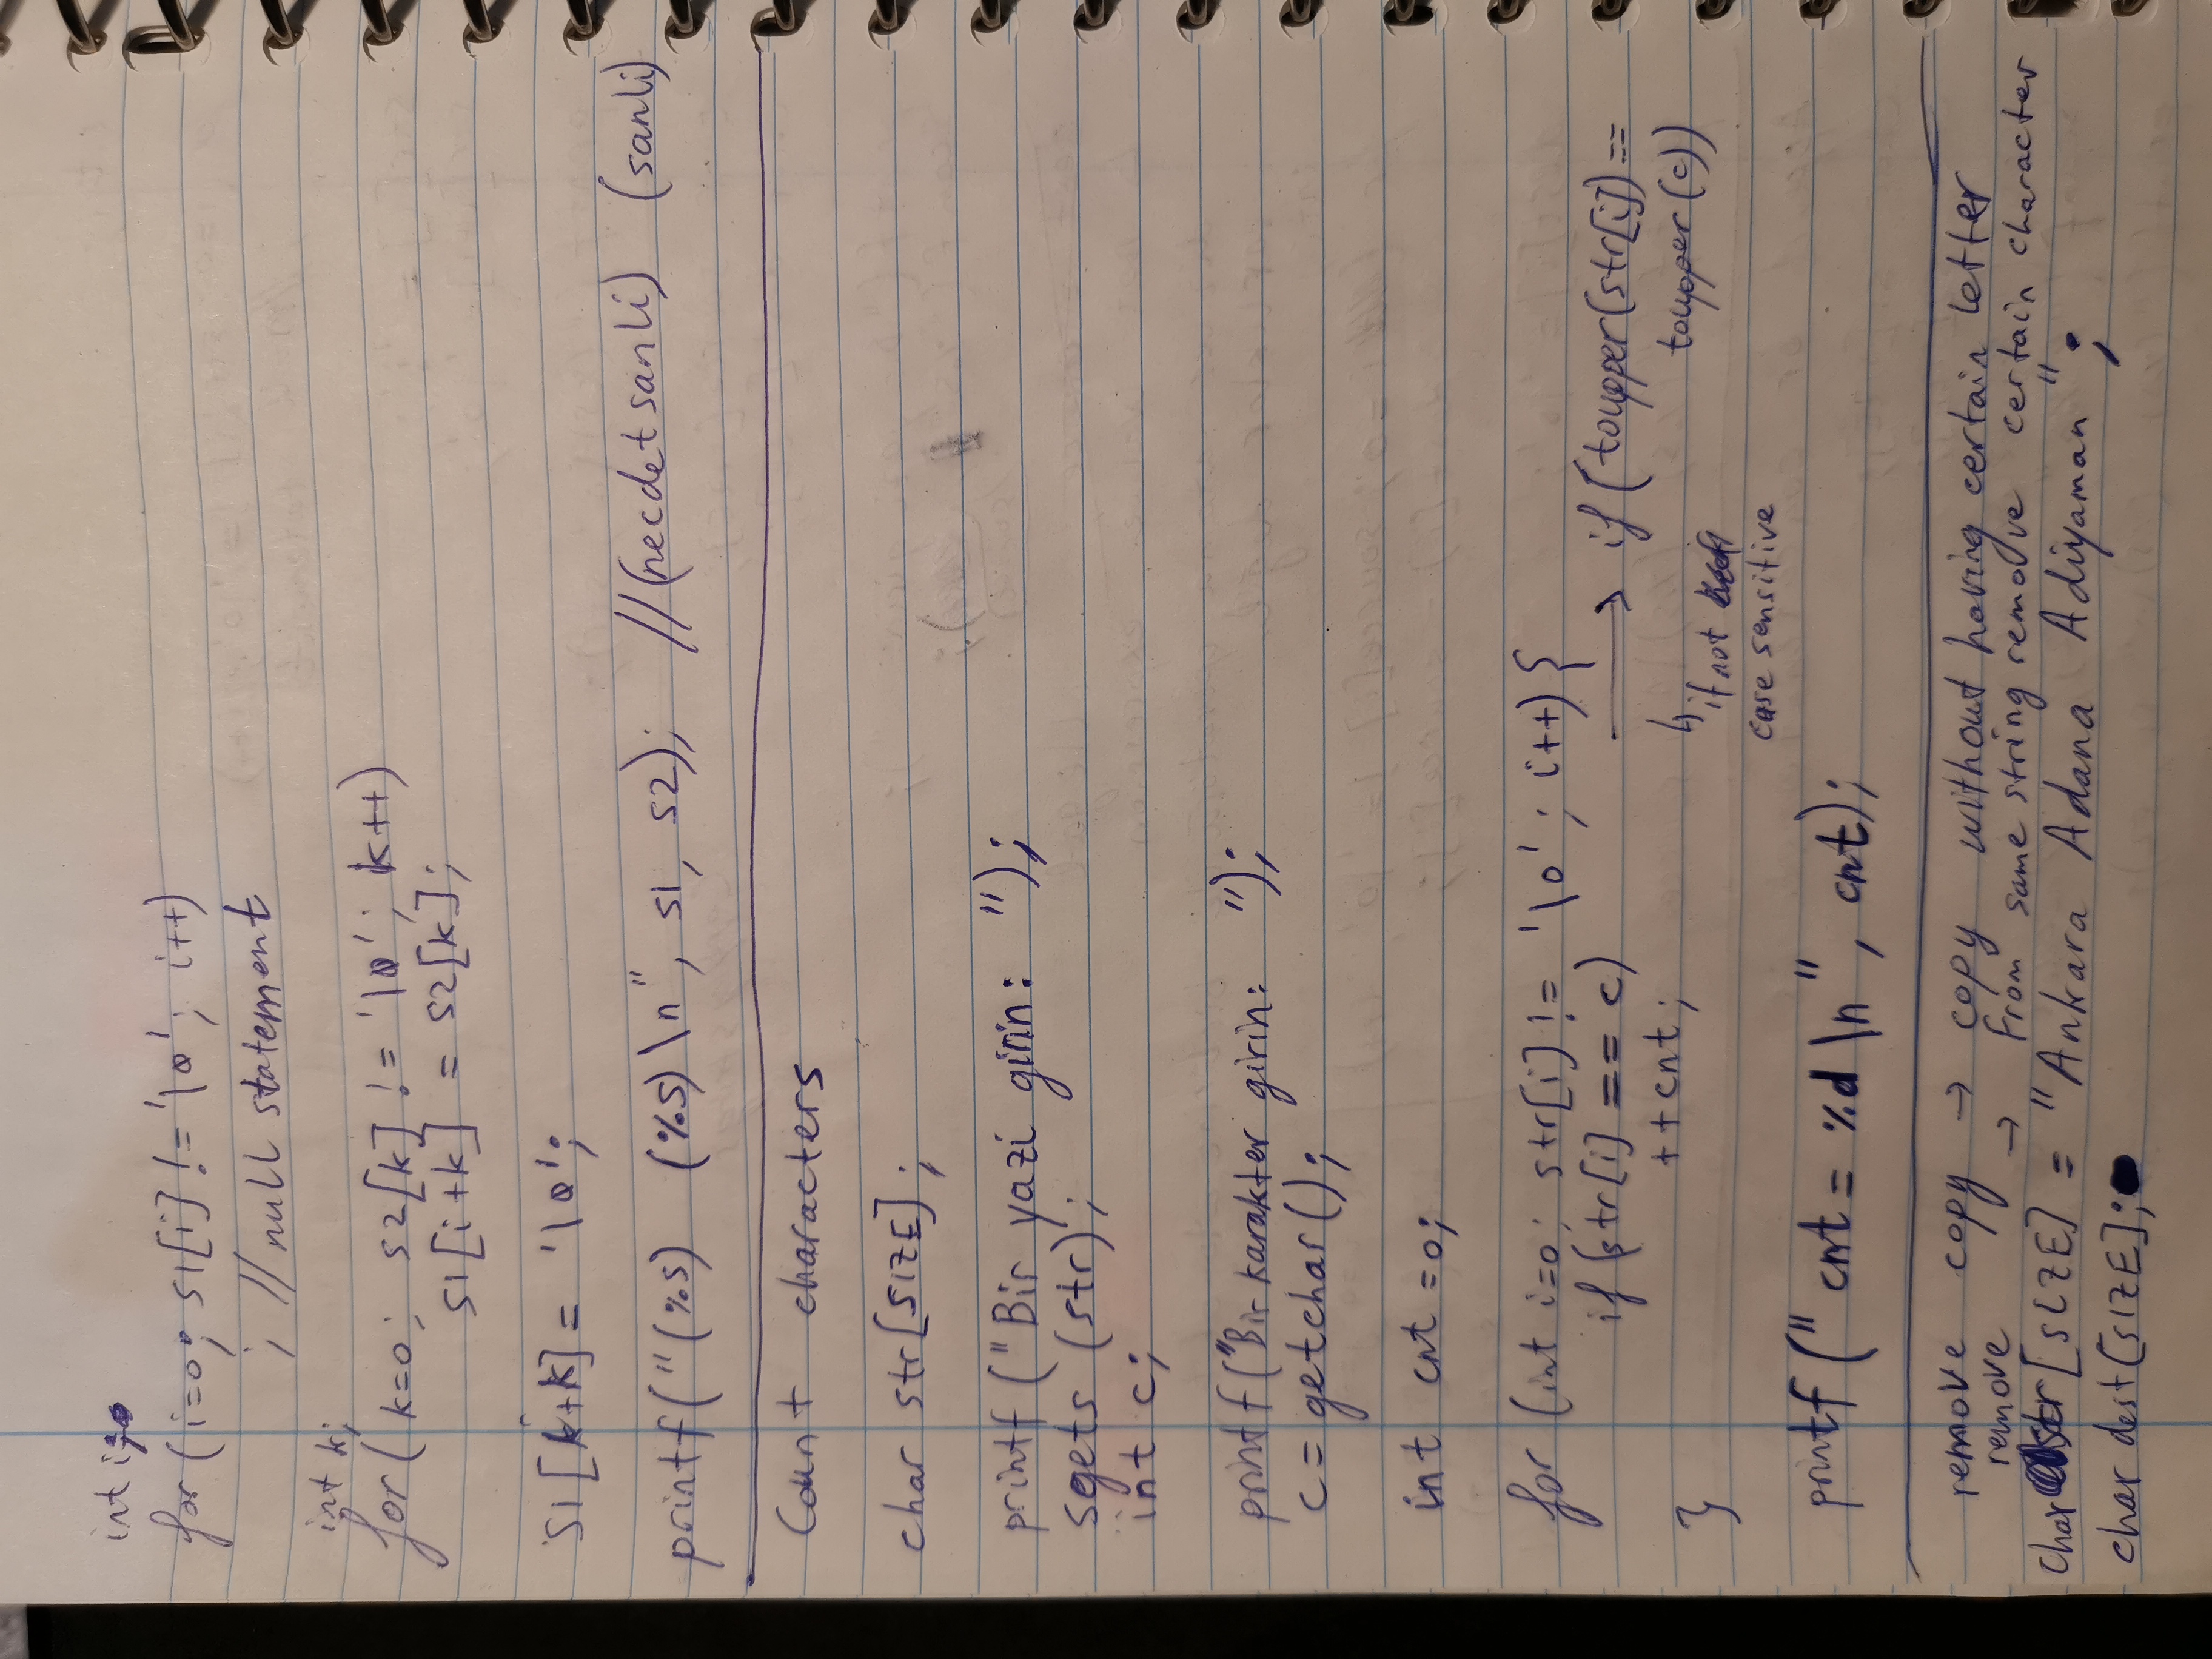 int i;
for (i=0; s1[i] != '\0'; i++)
; //null statement
int k;
for ( k=0; s2[k] != '\0'; k++)
s1[i+k] = s2[k];
s1[k+k] = '\0';
printf("(%s) (%s)\n", s1, s2); //(necdetsanli) (sanli)
Count characters
char str[SIZE];
printf ("Bir yazi girin: ");
sgets (str);
int c;
printf ("Bir karakter girin: ");
c = getchar();
int cnt =0;
for (int i=0; str[i] != '\0'; i++) {
if (str[i] == c) → if (toupper(str[i]) ==
++cnt; toupper (c))
} ↳ if not
case sensitive
printf (" cnt = %d \n", cnt);
remove copy → copy without having certain letter
remove → From same string remove certain character
char str [SIZE] = "Ankara Adana Adiyaman";
char dest[SIZE];